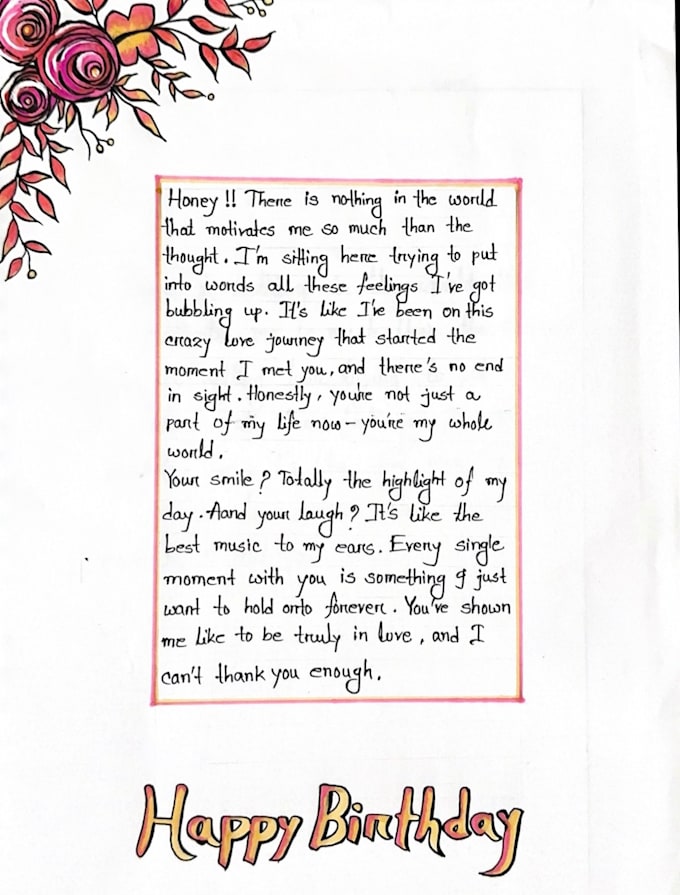 Honey !! There is nothing in the world
that motivates me so much than the
thought. I'm sitting here trying to put
into words all these feelings I've got
bubbling up. It's like I've been on this
crazy love journey that started the
moment I met you, and there's no end
in sight. Honestly, you're not just a
part of my life now - you're my whole
world.
Your smile? Totally the highlight of my
day. Aand your laugh? It's like the
best music to my ears. Every single
moment with you is something I just
want to hold onto forever. You've shown
me like to be truly in love, and I
can't thank you enough.
Happy Birthday